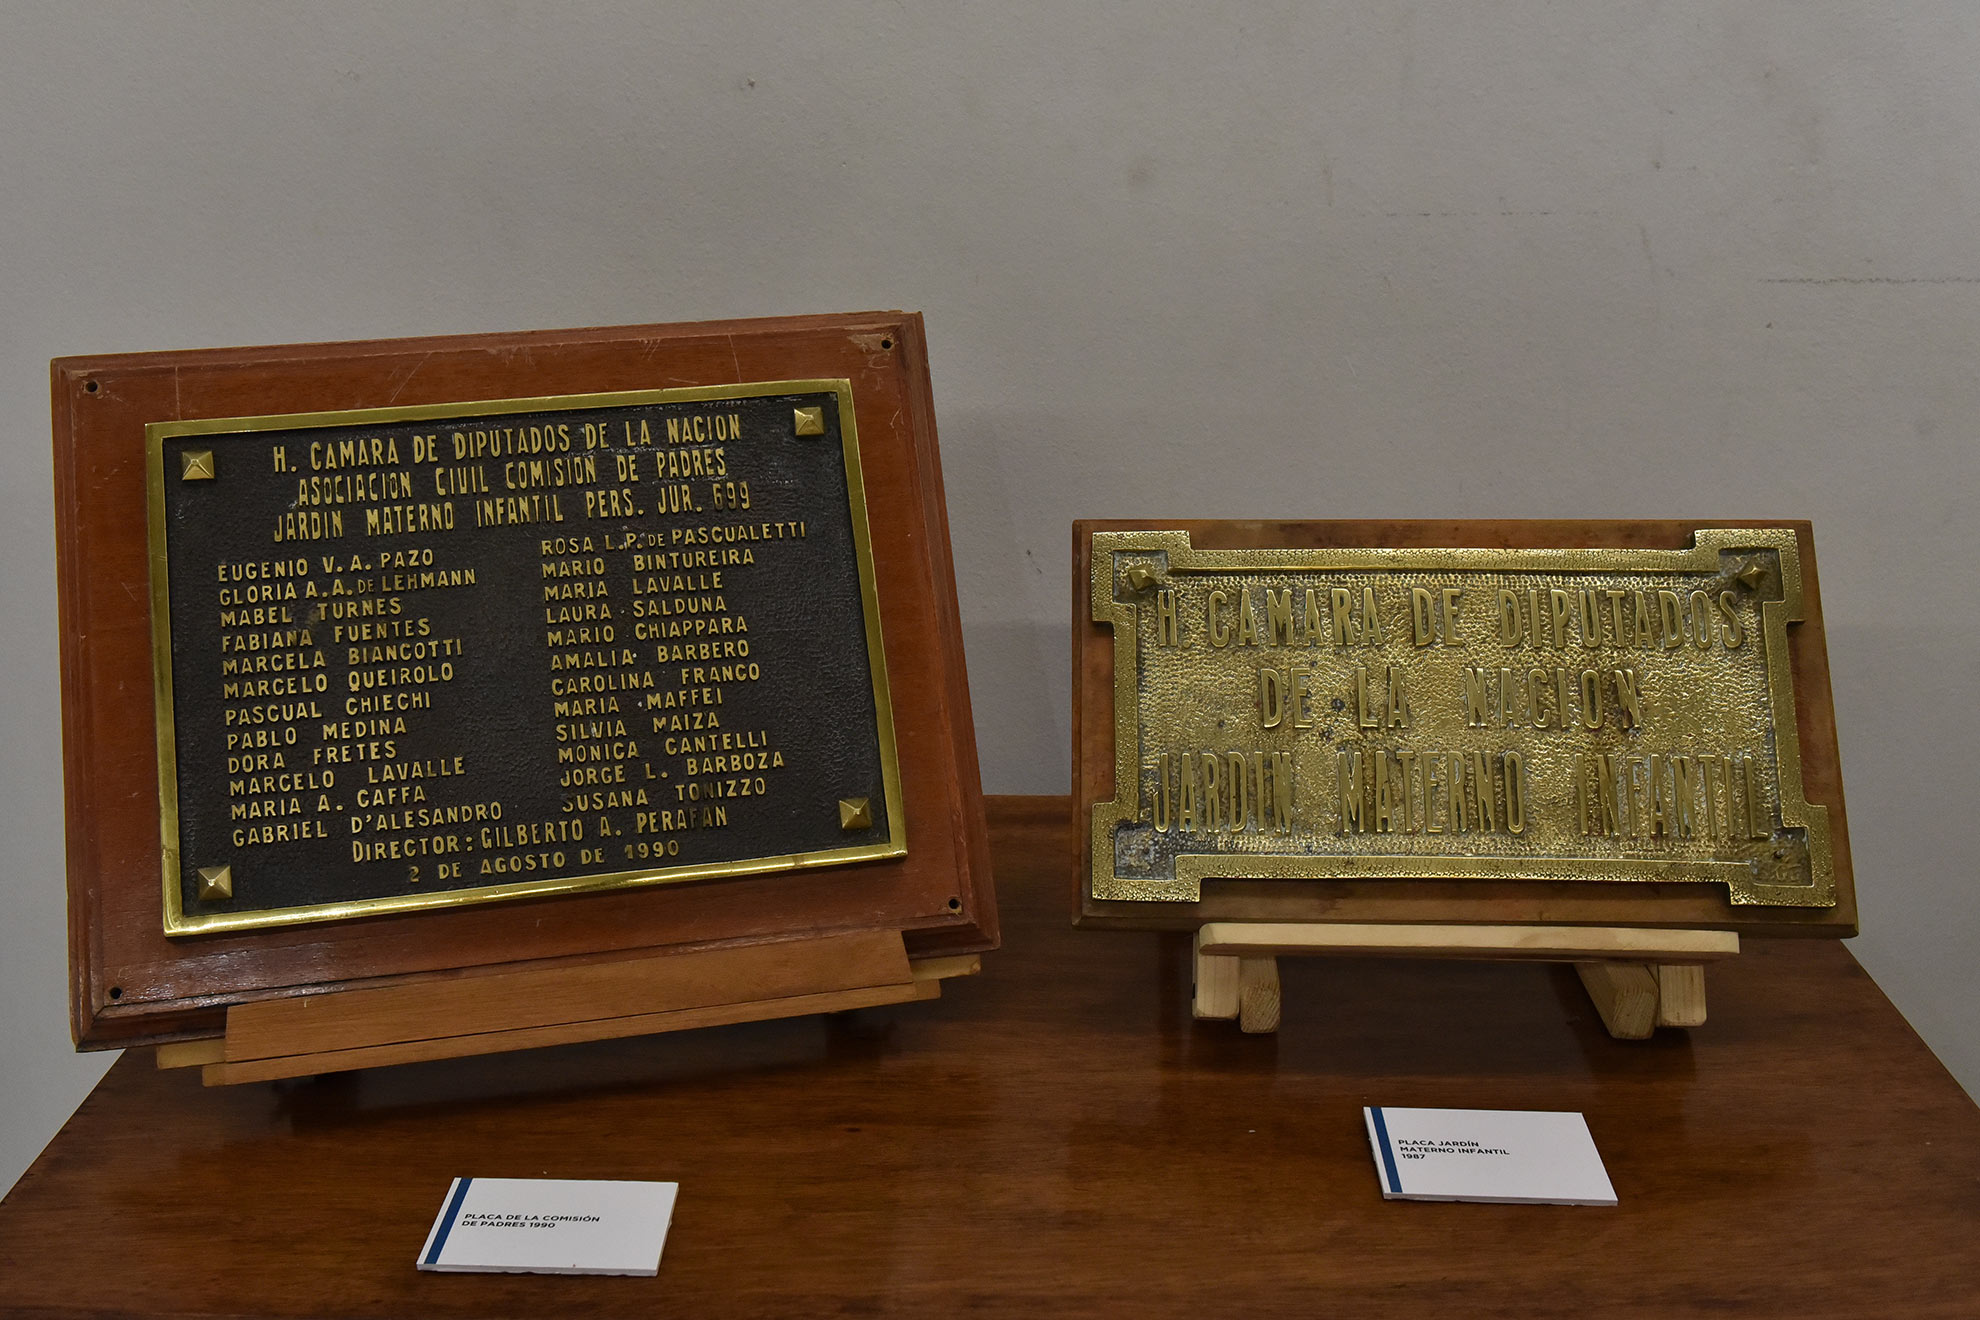 H. CAMARA DE DIPUTADOS DE LA NACION
ASOCIACION CIVIL COMISIÓN DE PADRES
JARDIN MATERNO INFANTIL PERS. JUR. 699
EUGENIO V. A. PAZO
GLORIA A. A. DE LEHMANN
MABEL TURNES
FABIANA FUENTES
MARCELA BIANCOTTI
MARCELO QUEIROLO
PASCUAL CHIECHI
PABLO MEDINA
DORA FRETES
MARCELO LAVALLE
MARIA A. CAFFA
GABRIEL D'ALESANDRO
ROSA L.P. DE PASCUALETTI
MARIO BINTUREIRA
MARIA LAVALLE
LAURA SALDUNA
MARIO CHIAPPARA
AMALIA BARBERO
CAROLINA FRANCO
MARIA MAFFEI
SILVIA MAIZA
MONICA CANTELLI
JORGE L. BARBOZA
SUSANA TONIZZO
DIRECTOR: GILBERTO A. PERAFAN
2 DE AGOSTO DE 1990
H. CAMARA DE DIPUTADOS
DE LA NACION
JARDIN MATERNO INFANTIL
PLACA DE LA COMISIÓN
DE PADRES 1990
PLACA JARDÍN
MATERNO INFANTIL
1987